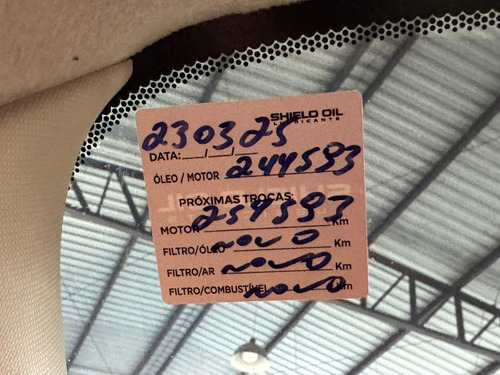 SHIELD OIL
LUBRICANTS
DATA: 23/03/25
ÓLEO / MOTOR 244593
PRÓXIMAS TROCAS:
MOTOR 254593 Km
FILTRO/ÓLEO novo
FILTRO/AR novo Km
FILTRO/COMBUSTÍVEL novo Km